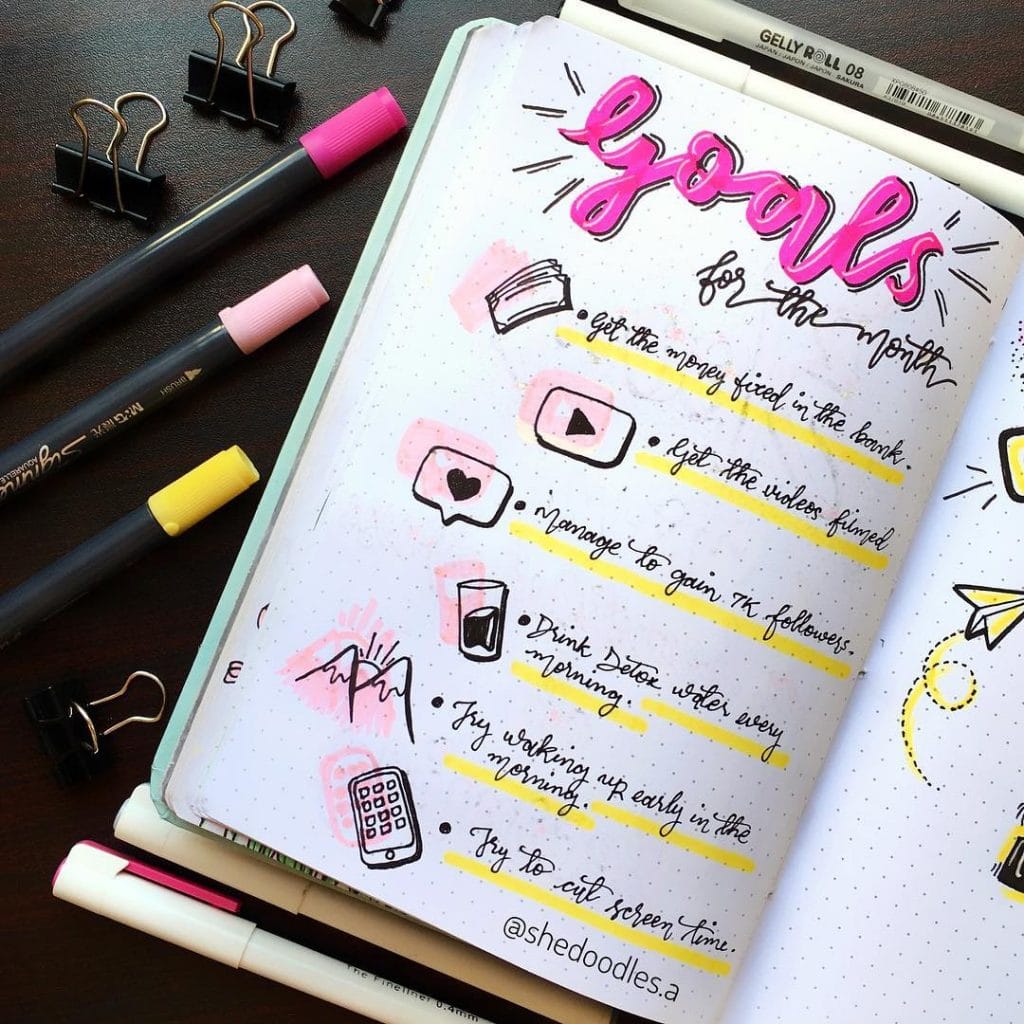 GELLY ROLL 08
JAPAN / JAPON / JAPON SAKURA
Goals
for the month
• Get the money fixed in the bank.
• Get the videos filmed
• Manage to gain 7K followers.
• Drink Detox water every
morning.
• Try waking up early in the
morning.
• Try to cut screen time.
@shedoodles.a
BRUSH
M&G
Signme
AQUARELLE
The Fineliner 0.4mm